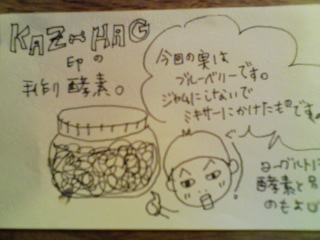 KAZ~HAG
印の
手作り酵素。
今回の実は
ブルーベリーです。
ジャムにしないで
ミキサーにかけたものです
ヨーグルトに
酵素と
のもよ